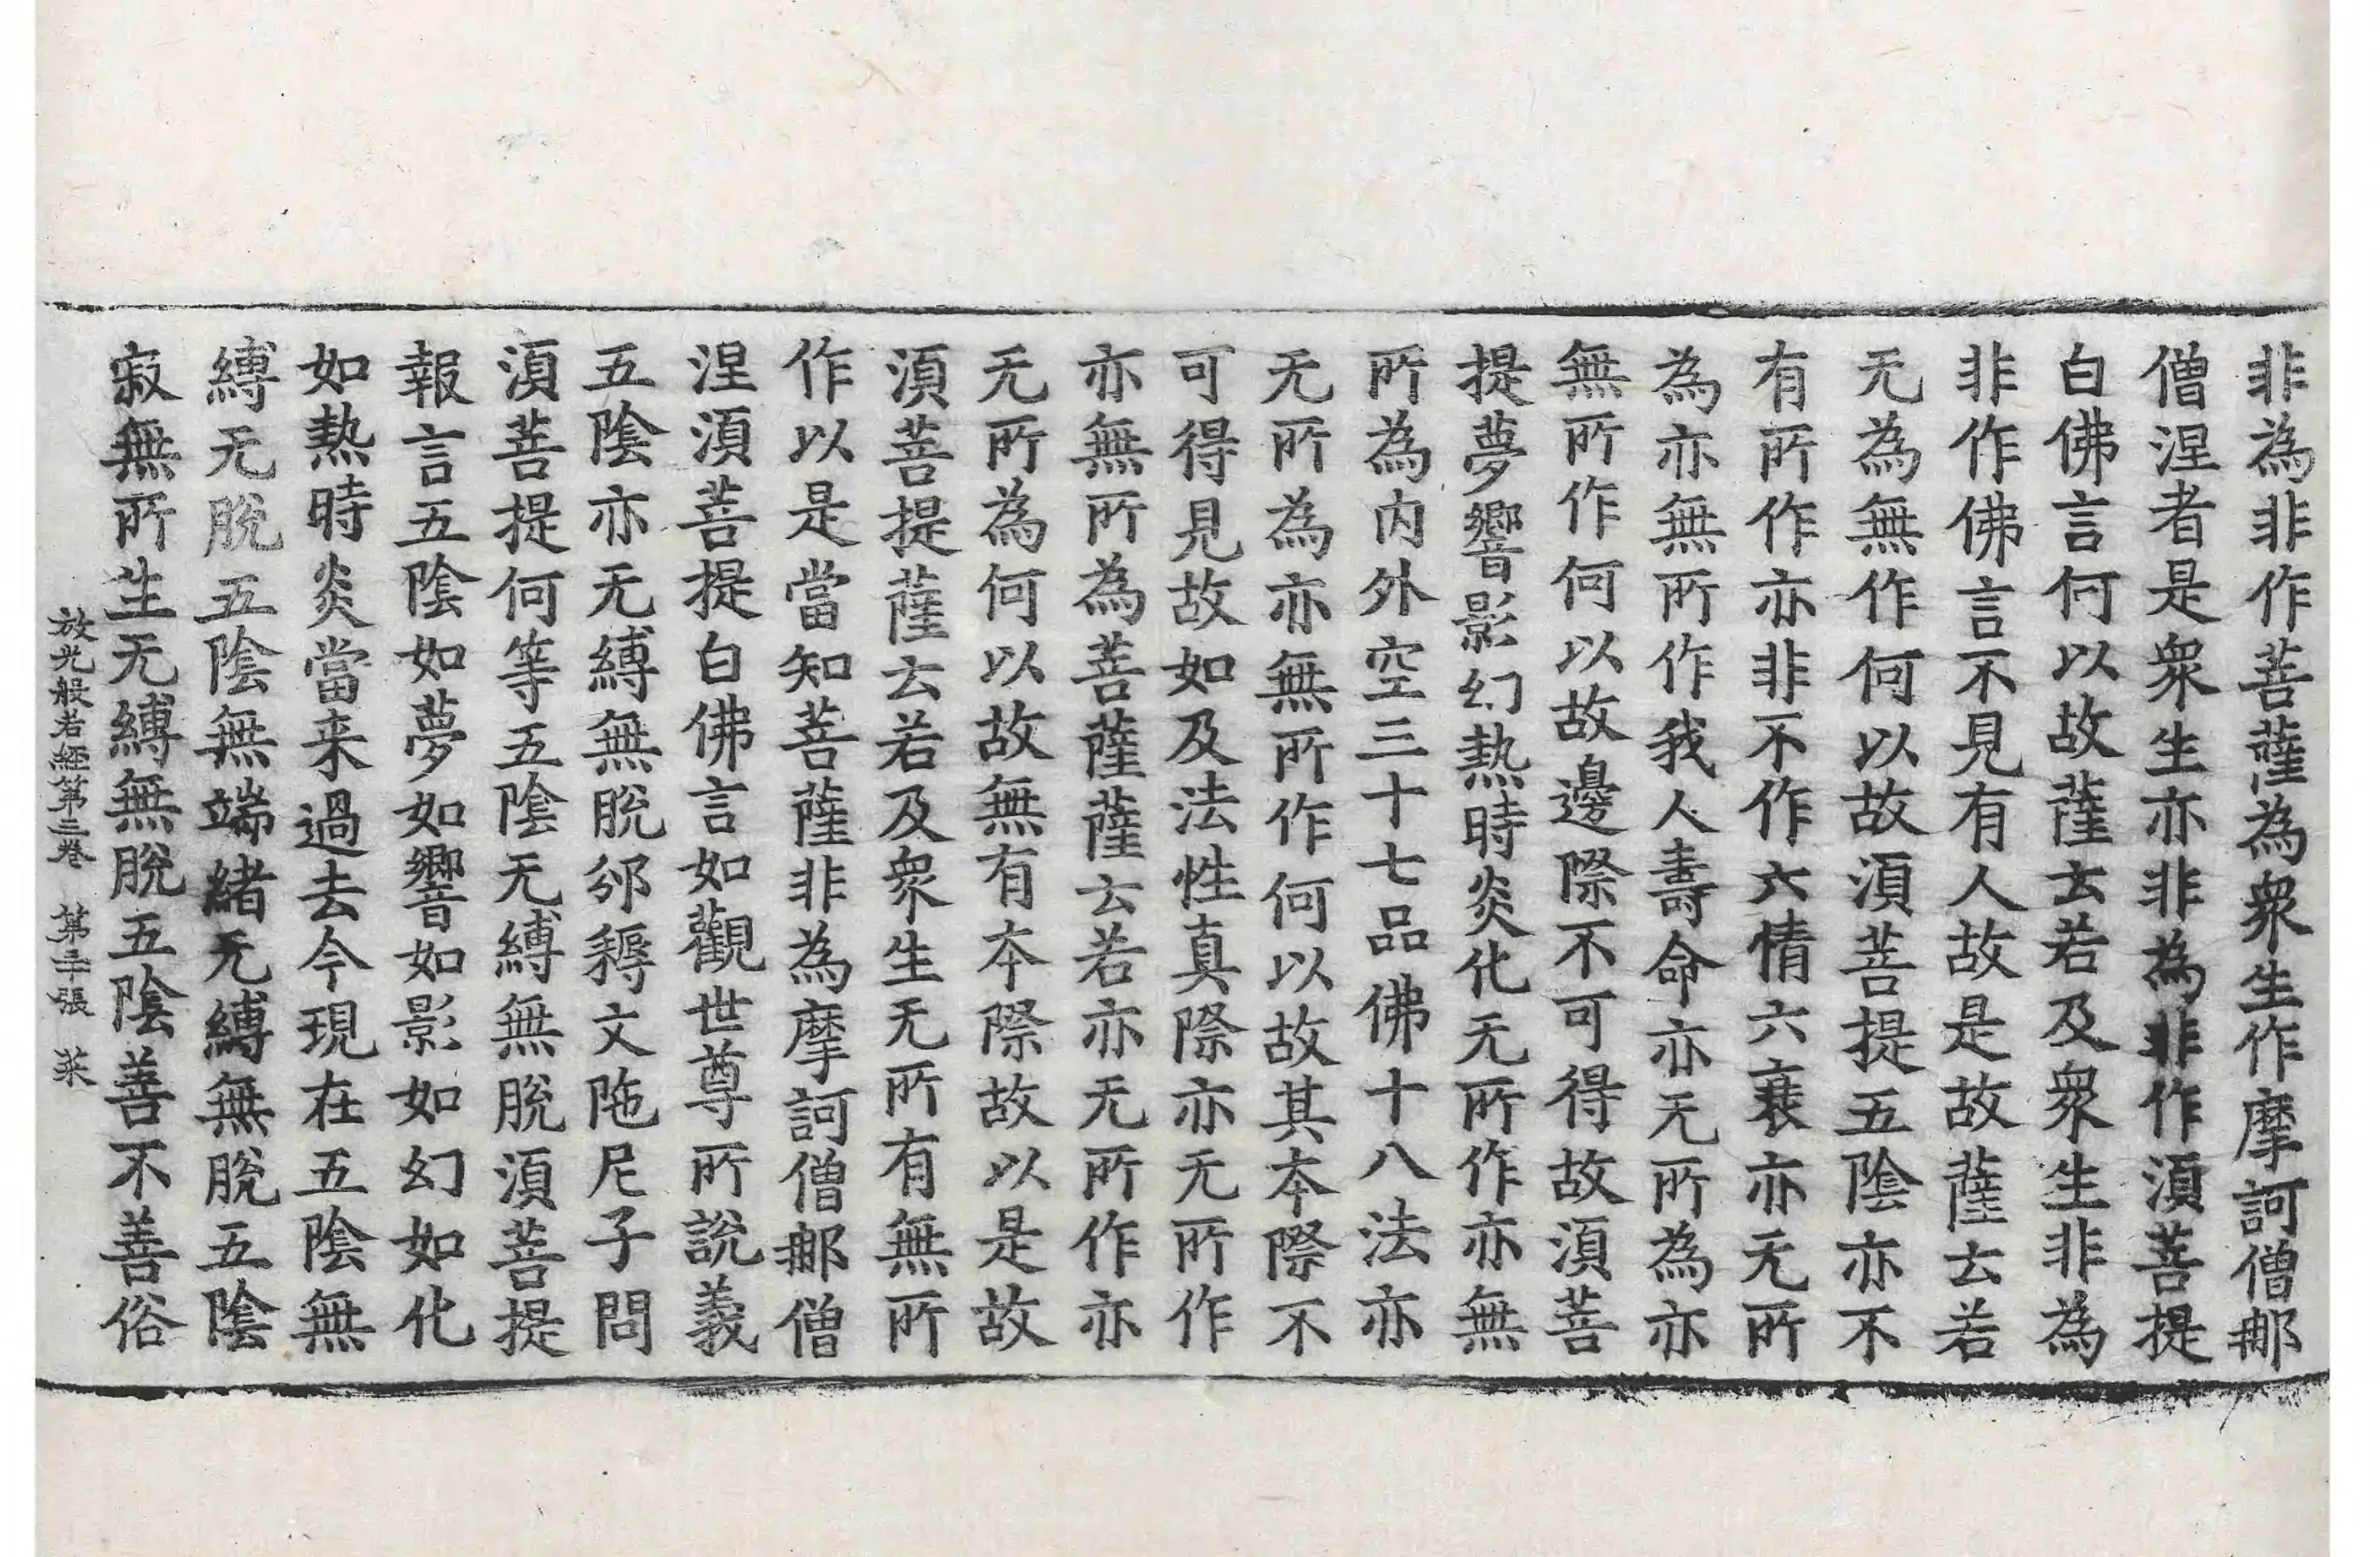 非為非作菩薩為衆生作摩訶僧𨚗
僧涅者是衆生亦非為非作湏菩提
白佛言何以故薩云若及衆生非為
非作佛言不見有人故是故薩云若
无為無作何以故湏菩提五陰亦不
有所作亦非不作六情六衰亦无所
為亦無所作我人壽命亦无所為亦
無所作何以故邊際不可得故湏菩
提夢響影幻熱時炎化无所作亦無
所為内外空三十七品佛十八法亦
无所為亦無所作何以故其夲際不
可得見故如及法性真際亦无所作
亦無所為菩薩薩云若亦无所作亦
无所為何以故無有夲際故以是故
湏菩提薩云若及衆生无所有無所
作以是當知菩薩非為摩訶僧𨚗僧
涅湏菩提白佛言如觀世尊所說義
五陰亦无縛無脫邠耨文陁尼子問
湏菩提何等五陰无縛無脫湏菩提
報言五陰如夢如響如影如幻如化
如熱時炎當来過去今現在五陰無
縛无脫五陰無端緒无縛無脫五陰
寂無所生无縛無脫五陰善不善俗
放光般若經第三卷　第二十張　菜